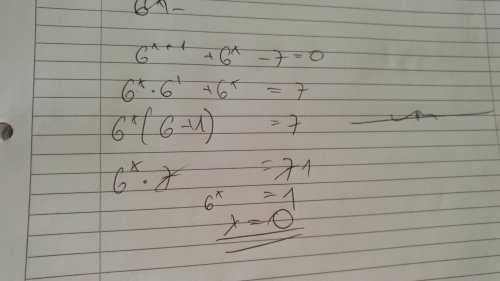 6^{x+1} + 6^x - 7 = 0
6^x · 6^1 + 6^x = 7
6^x (6+1) = 7
6^x · 7 = 7 1
6^x = 1
x = 0